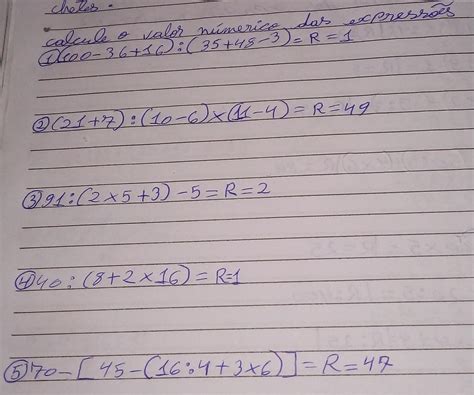 chetes.
calcule o valor númerico das expressões
①(100-36+16):(35+48-3)=R=1
②(21+7):(10-6)×(11-4)=R=49
③91:(2×5+3)-5=R=2
④40:(8+2×16)=R=1
⑤70-[45-(16:4+3×6)]=R=47